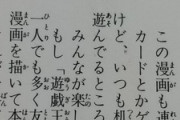 この漫画も連
カードとかゲ
けど、いつも机
遊んでるところ
みんなが楽し
もし「遊戯王
一人でも多く友
漫画を描いて本